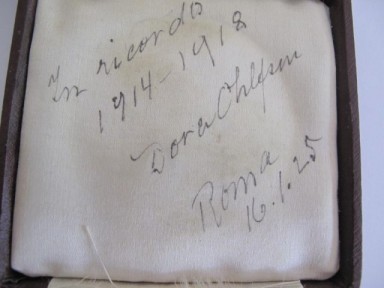 In ricordo
1914-1918
Dora Ohlfsen
Roma
16.1.25